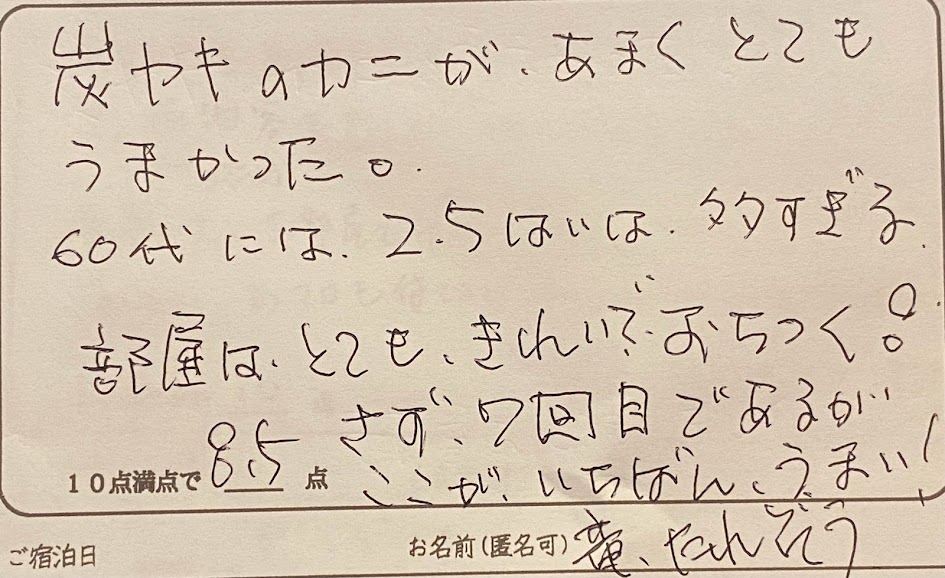 炭ヤキのカニが、あまくとても
うまかった。
60代には、2.5はいは、多すぎる、
部屋は、とても、きれいで、おちつく!
さず、7回目であるが
10点満点で 8.5 点
ここが、いちばん、うまい!
ご宿泊日
お名前(匿名可)